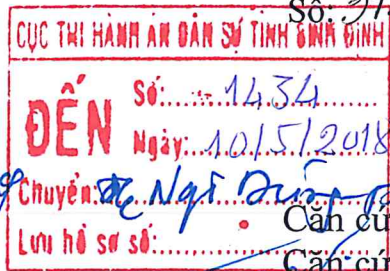 Số:
CỤC THI HÀNH ÁN DÂN SỰ TỈNH BÌNH ĐỊNH
ĐẾN
Số: 1434
Ngày: 10/5/2018
Chuyển:
Lưu hồ sơ số:
Căn cứ
Căn cứ